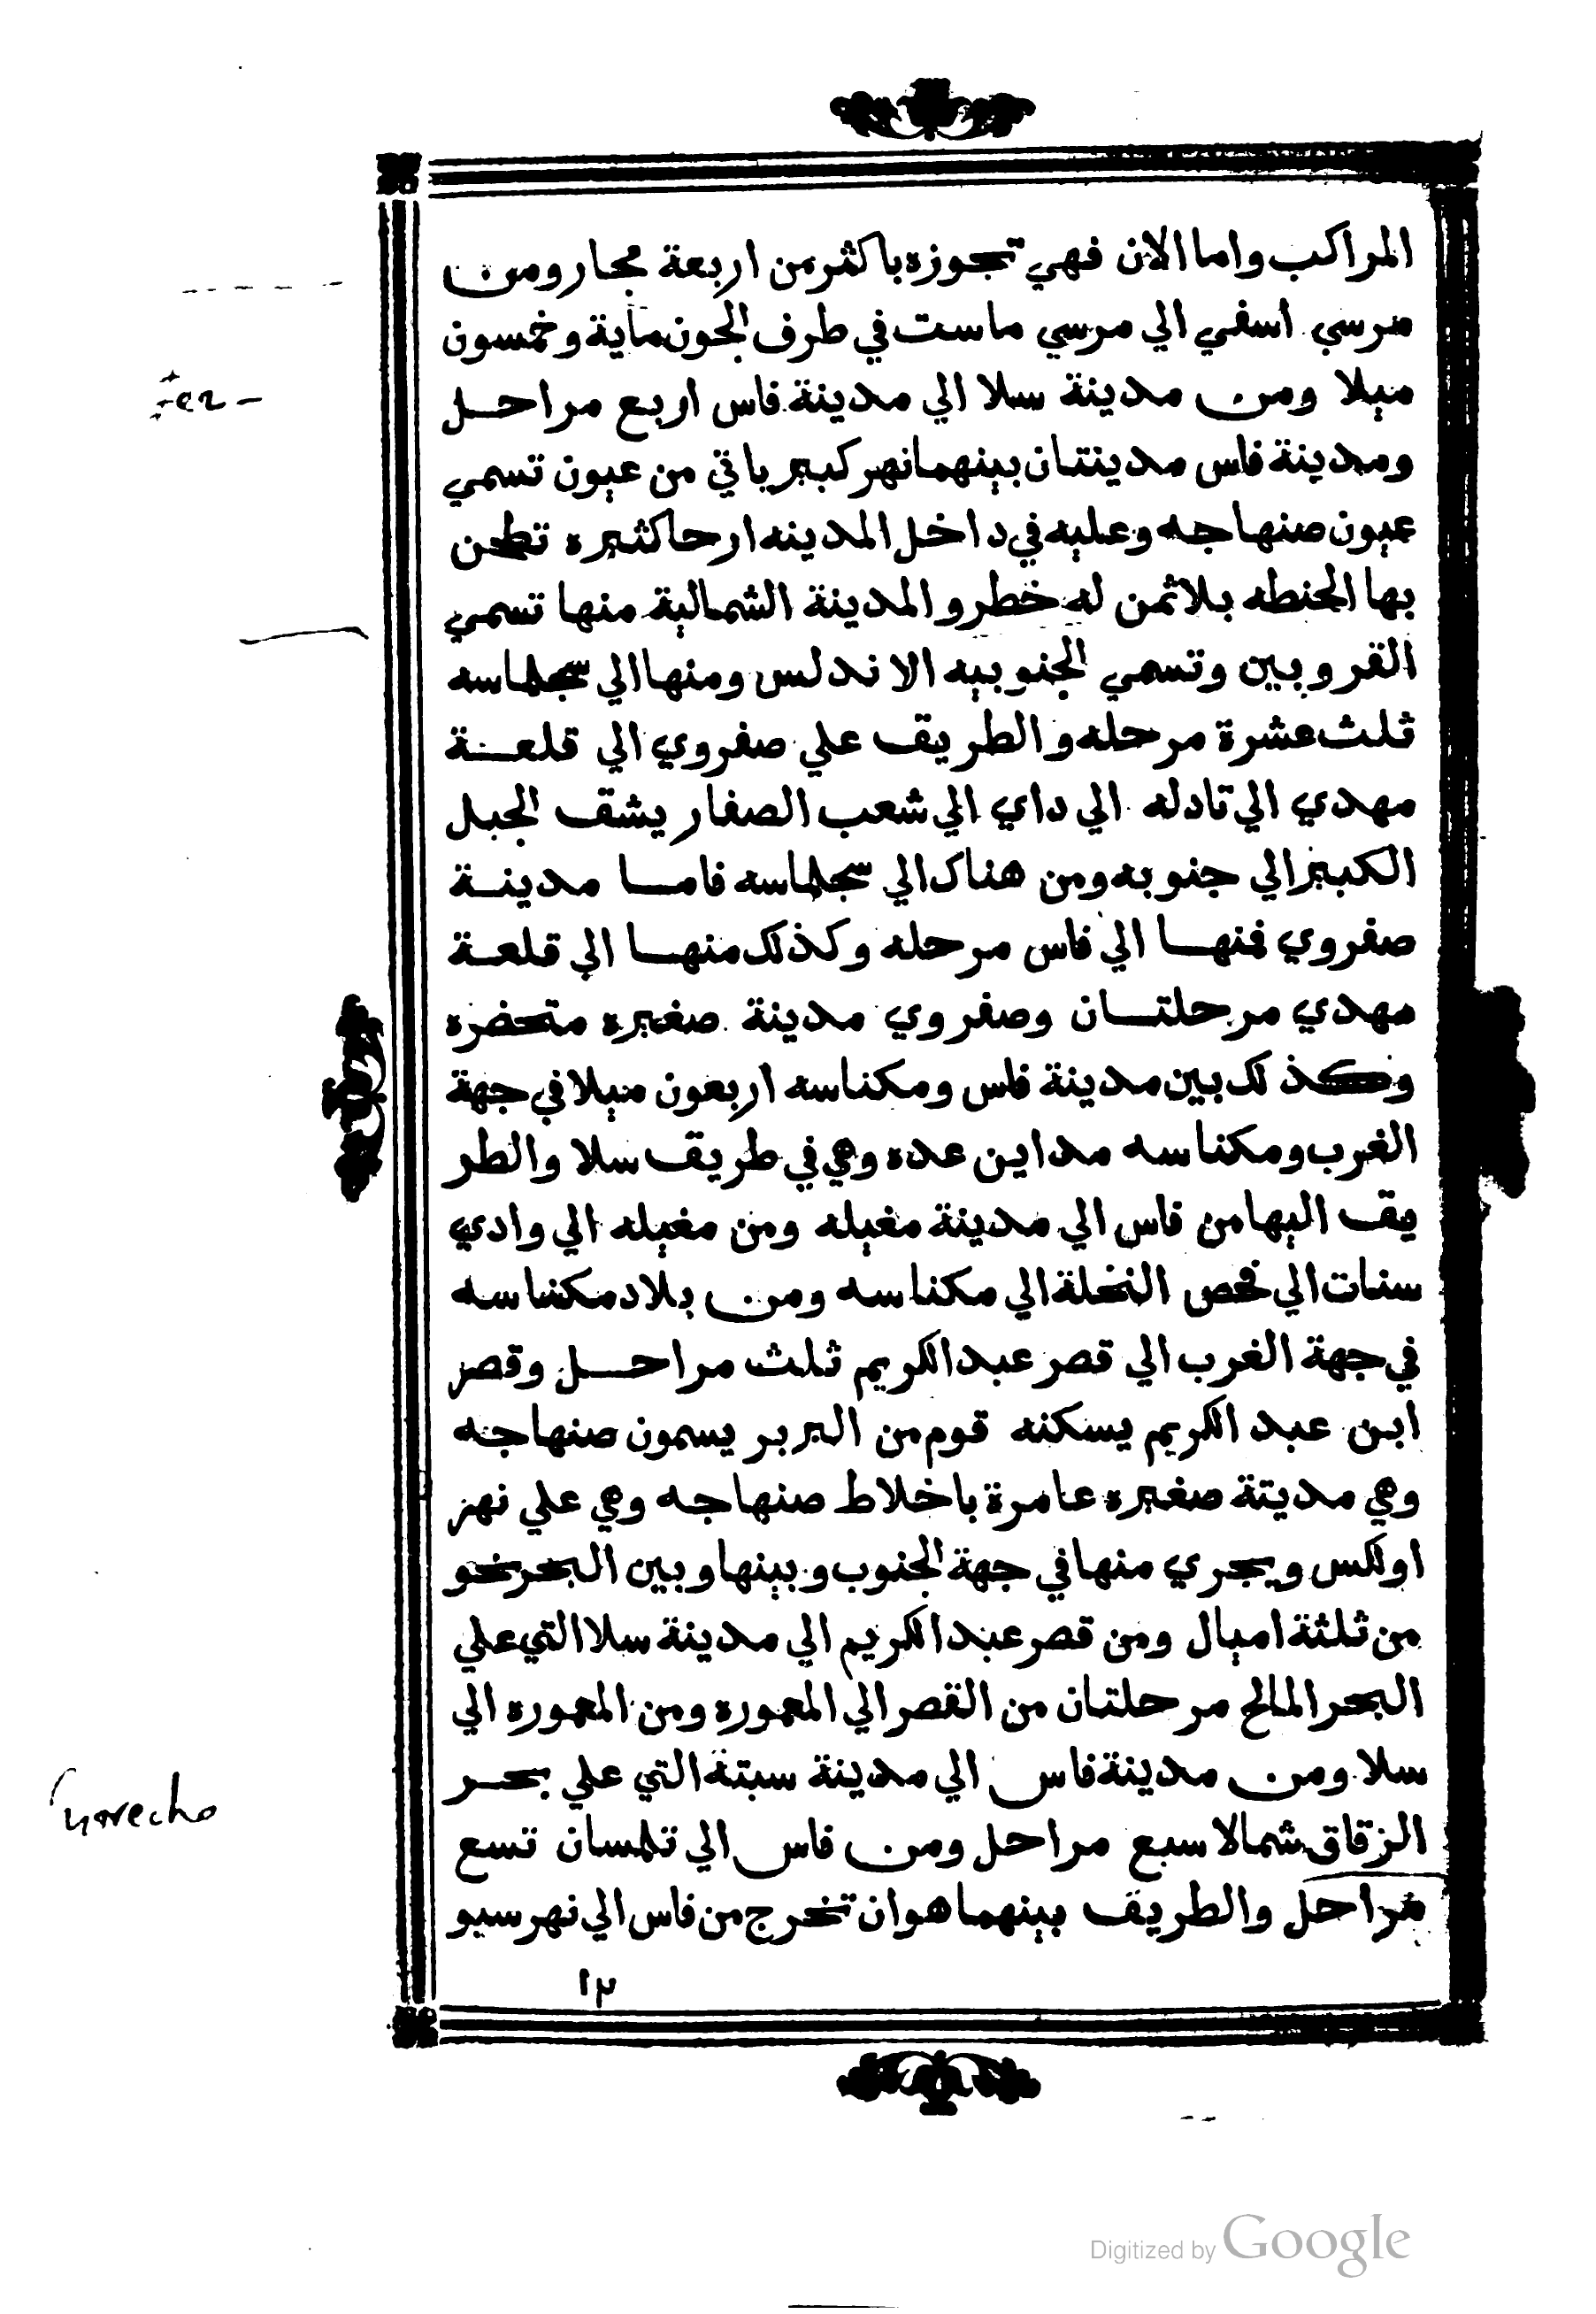 المراكب واما الان فهي تجوزه باكثر من اربعة مجار ومن
مرسي اسفي الي مرسي ماست في طرف الجون ماية وخمسون
ميلا ومن مدينة سلا الي مدينة فاس اربع مراحل
Fez -
ومدينة فاس مدينتان بينهما نهر كبير ياتي من عيون تسمي
عيون صنهاجه وعليه في داخل المدينه ارحا كثيره تطحن
بها الحنطه بلا ثمن له خطر و المدينة الشمالية منها تسمي
القرويين وتسمي الجنوبيه الاندلس ومنها الي سجلماسه
ثلث عشرة مرحله والطريق علي صفروي الي قلعة
مهدي الي تادله الي داي الي شعب الصفار يشق الجبل
الكبير الي جنوبه ومن هناك الي سجلماسه فاما مدينة
صفروي فمنها الي فاس مرحله وكذلك منها الي قلعة
مهدي مرحلتان وصفروي مدينة صغيره متحضره
وكذلك بين مدينة فاس ومكناسه اربعون ميلا في جهة
الغرب ومكناسه مداين عده وهي في طريق سلا والطر
يق اليها من فاس الي مدينة مغيله ومن مغيله الي وادي
سنات الي فحص النخلة الي مكناسه ومن بلاد مكناسه
في جهة الغرب الي قصر عبد الكريم ثلث مراحل وقصر
ابن عبد الكريم يسكنه قوم من البربر يسمون صنهاجه
وهي مديتة صغيره عامرة باخلاط صنهاجه وهي علي نهر
اولكس ويجري منها في جهة الجنوب وبينها وبين البحر نحو
من ثلثة اميال ومن قصر عبد الكريم الي مدينة سلا التي علي
البحر المالح مرحلتان من القصر الي المعموره ومن المعموره الي
سلا ومن مدينة فاس الي مدينة سبتة التي علي بحر
الزقاق شمالا سبع مراحل ومن فاس الي تلمسان تسع
مراحل والطريق بينهما هو ان تخرج من فاس الي نهر سبو
١٢
Digitized by Google